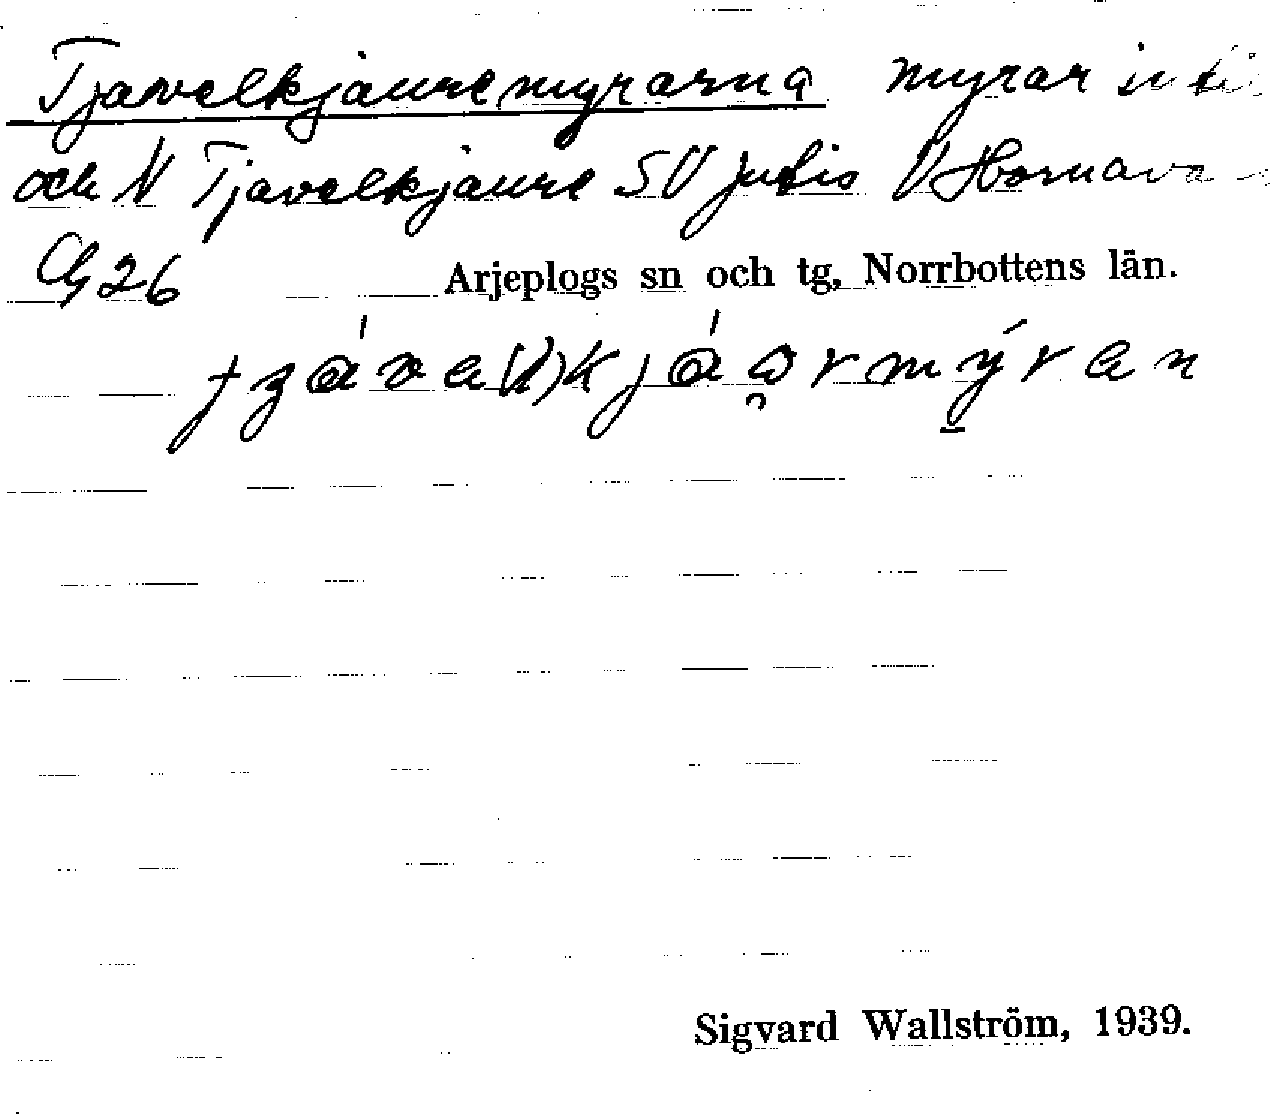 Tjavelkjauremyrarna myrar intil
och N Tjavelkjaure SV Jutis V Hornavan
Cg 26 Arjeplogs sn och tg, Norrbottens län.
Sigvard Wallström, 1939.